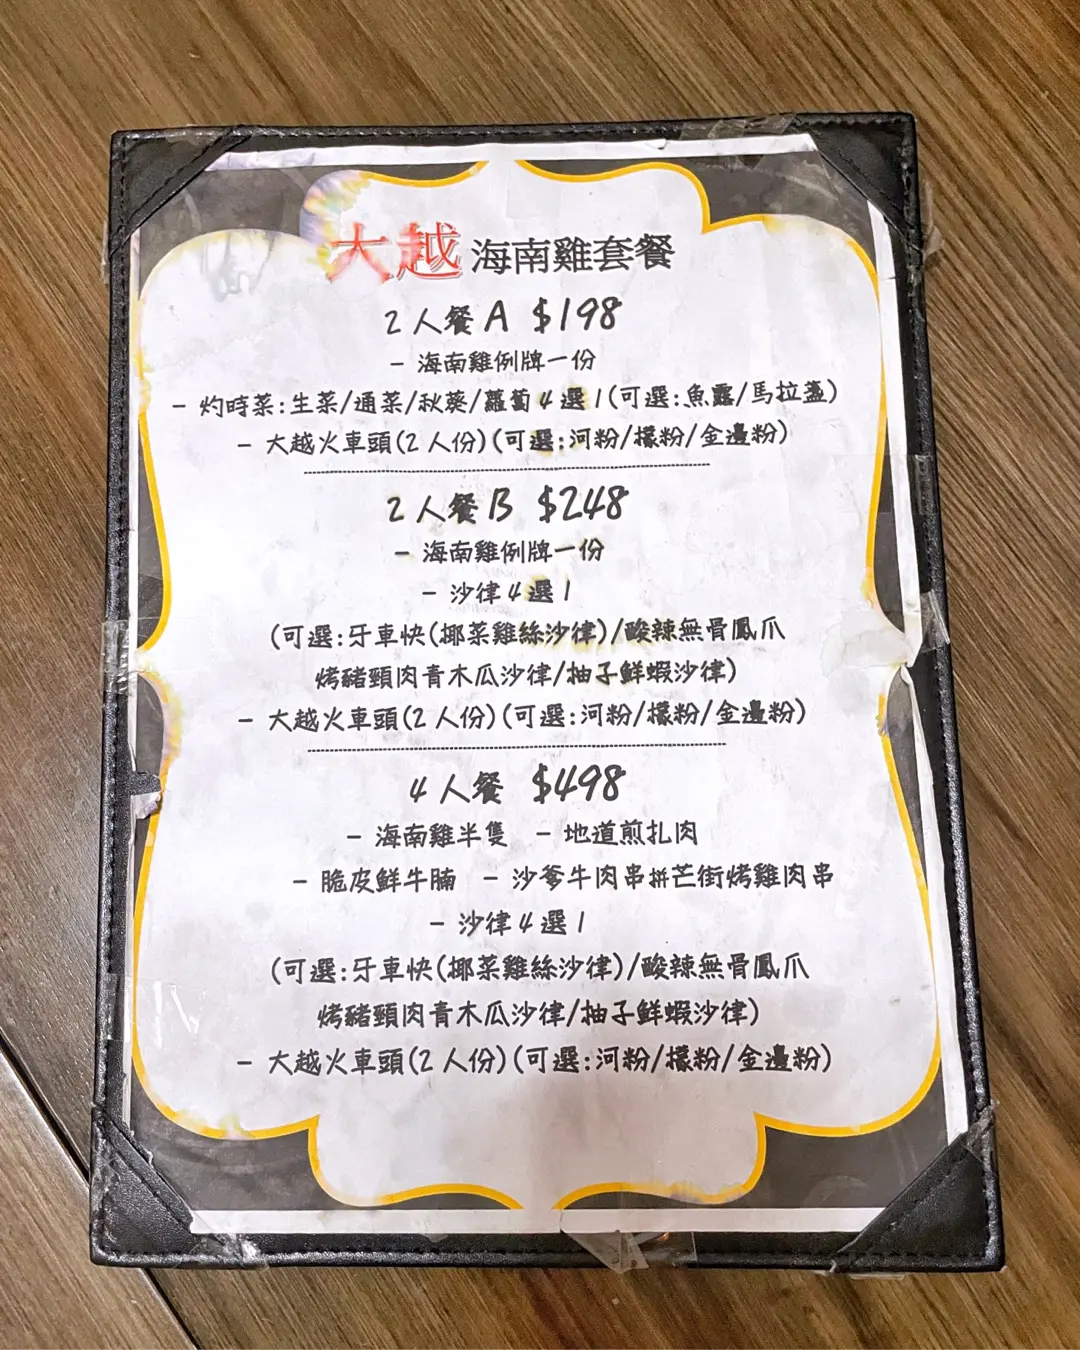 大越 海南雞套餐
2人餐A $198
- 海南雞例牌一份
- 灼時菜:生菜/通菜/秋葵/蘿蔔4選1(可選:魚露/馬拉盞)
- 大越火車頭(2人份)(可選:河粉/檬粉/金邊粉)
2人餐B $248
- 海南雞例牌一份
- 沙律4選1
(可選:牙車快(椰菜雞絲沙律)/酸辣無骨鳳爪
烤豬頸肉青木瓜沙律/柚子鮮蝦沙律)
- 大越火車頭(2人份)(可選:河粉/檬粉/金邊粉)
4人餐 $498
- 海南雞半隻 - 地道煎扎肉
- 脆皮鮮牛腩 - 沙爹牛肉串拼芒街烤雞肉串
- 沙律4選1
(可選:牙車快(椰菜雞絲沙律)/酸辣無骨鳳爪
烤豬頸肉青木瓜沙律/柚子鮮蝦沙律)
- 大越火車頭(2人份)(可選:河粉/檬粉/金邊粉)